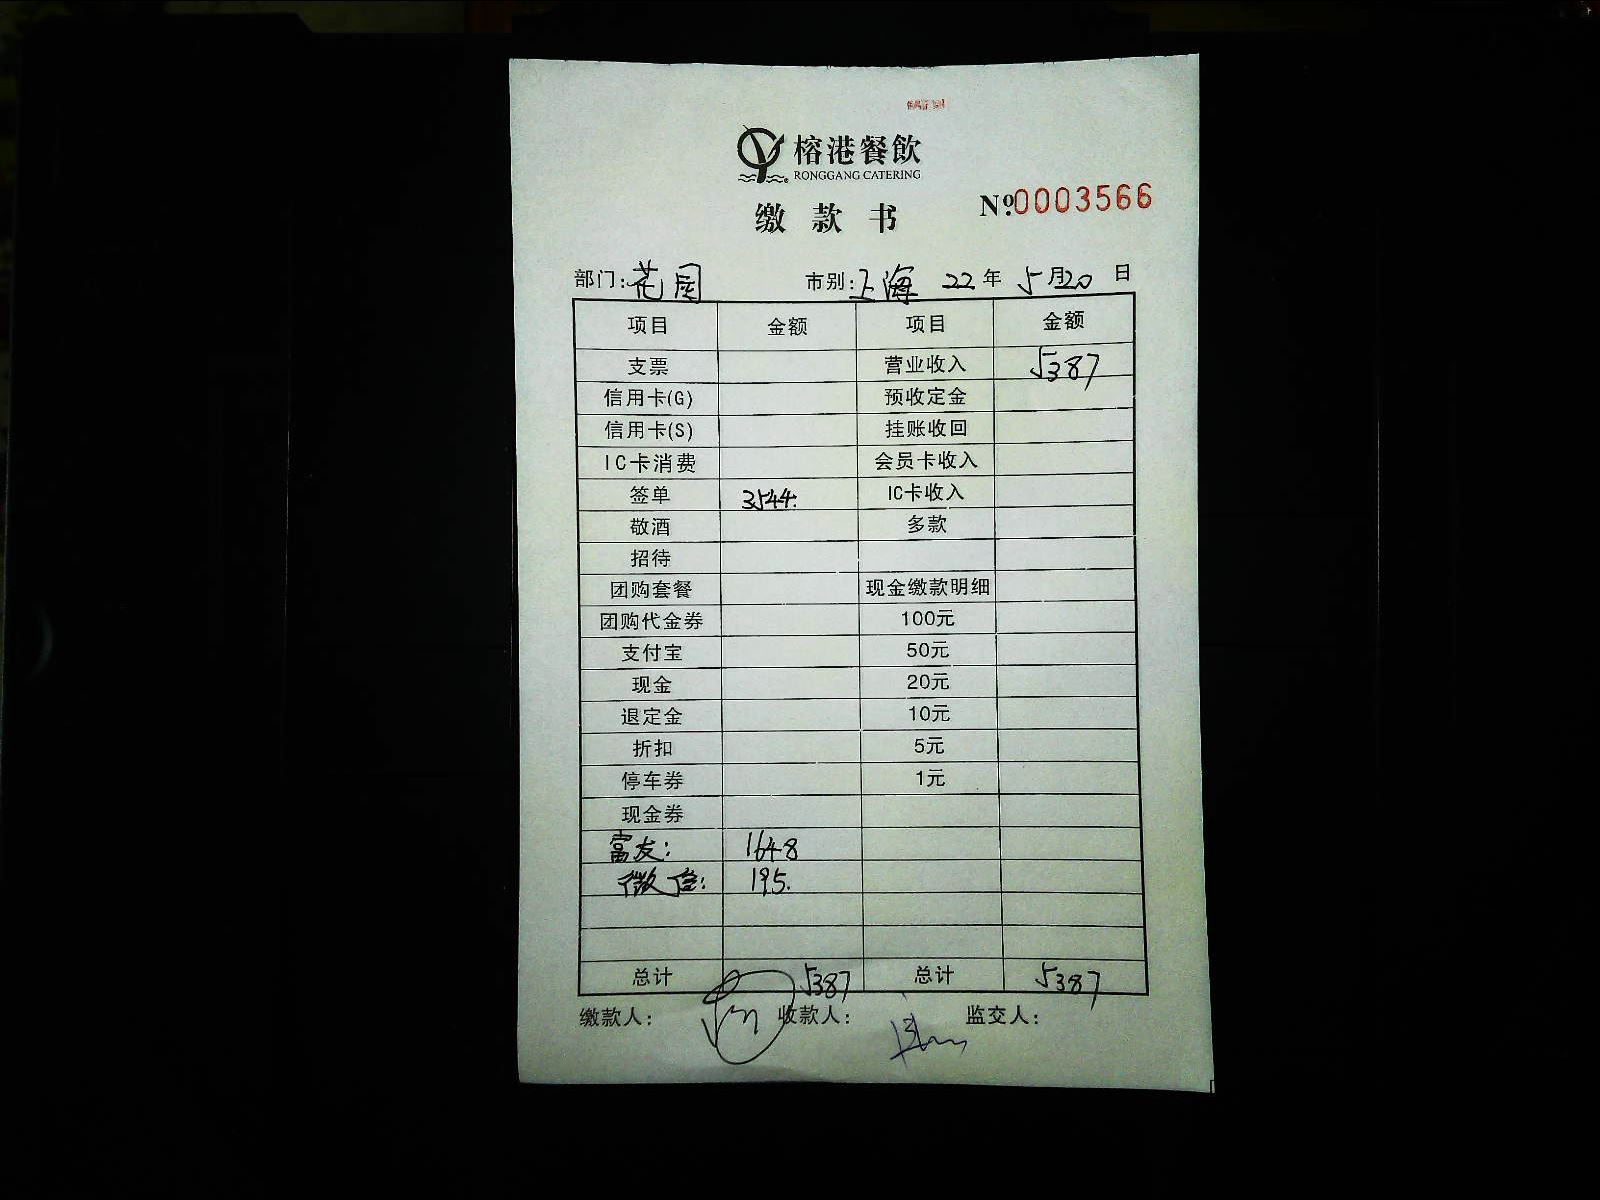 榕港餐飲
RONGGANG CATERING
缴款书
Nº.0003566
部门:花园 市别:上海 22年5月20日
项目 金额 项目 金额
支票 营业收入 5387
信用卡(G) 预收定金
信用卡(S) 挂账收回
IC卡消费 会员卡收入
签单 3544. IC卡收入
敬酒 多款
招待
团购套餐 现金缴款明细
团购代金券 100元
支付宝 50元
现金 20元
退定金 10元
折扣 5元
停车券 1元
现金券
富友: 1648
微信: 195.
总计 5387 总计 5387
缴款人: 收款人: 监交人: